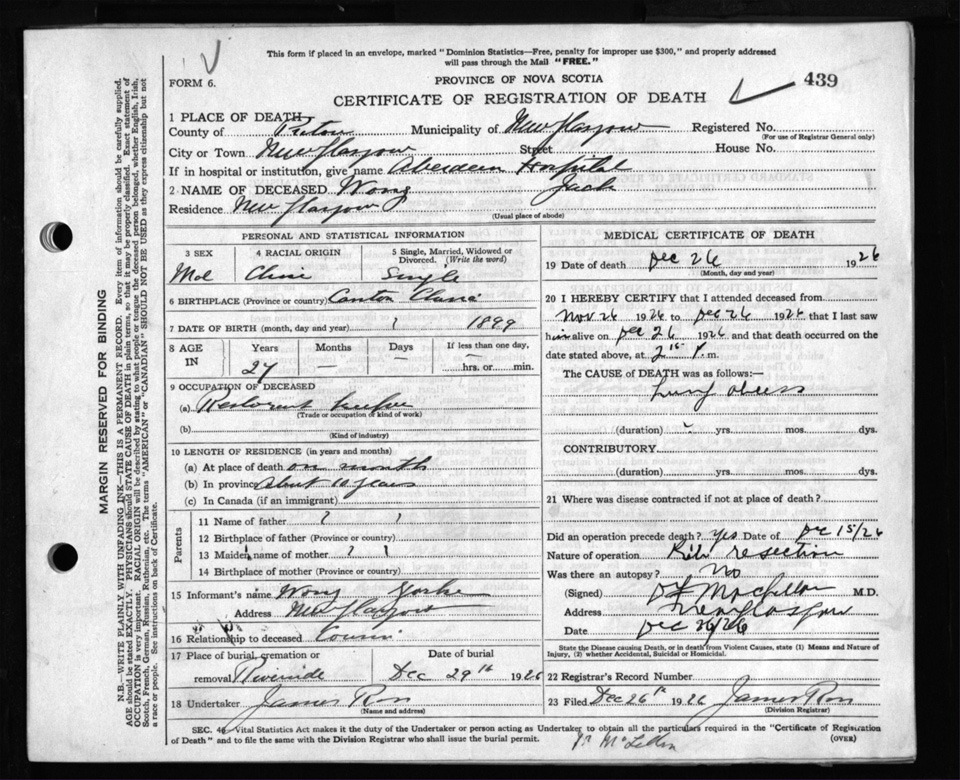 This form if placed in an envelope, marked "Dominion Statistics—Free, penalty for improper use $300," and properly addressed
will pass through the Mail "FREE."
FORM 6.
PROVINCE OF NOVA SCOTIA
439
CERTIFICATE OF REGISTRATION OF DEATH
1 PLACE OF DEATH
County of Pictou Municipality of New Glasgow Registered No.
(For use of Registrar General only)
City or Town New Glasgow Street House No.
If in hospital or institution, give name Aberdeen Hospital
2 NAME OF DECEASED Wong Jack
Residence New Glasgow
(Usual place of abode)
PERSONAL AND STATISTICAL INFORMATION
3 SEX 4 RACIAL ORIGIN 5 Single, Married, Widowed or
Divorced. (Write the word)
Mal Chin Single
6 BIRTHPLACE (Province or country) Canton China
7 DATE OF BIRTH (month, day and year) 1899
8 AGE Years Months Days If less than one day,
IN 27 — — hrs. or min.
9 OCCUPATION OF DECEASED
(a) Restorent keeper
(Trade or occupation or kind of work)
(b)
(Kind of industry)
10 LENGTH OF RESIDENCE (in years and months)
(a) At place of death on month
(b) In province about 10 years
(c) In Canada (if an immigrant)
Parents
11 Name of father ?
12 Birthplace of father (Province or country)
13 Maiden name of mother ? ?
14 Birthplace of mother (Province or country)
15 Informant's name Wong Yorke
Address New Glasgow
16 Relationship to deceased Cousin
17 Place of burial, cremation or Date of burial
removal Riverside Dec 29th 1926
18 Undertaker James Ross
(Name and address)
MEDICAL CERTIFICATE OF DEATH
19 Date of death Dec 26 1926
(Month, day and year)
20 I HEREBY CERTIFY that I attended deceased from
Nov 26 1926 to Dec 26 1926 that I last saw
him alive on Dec 26 1926 and that death occurred on the
date stated above, at 2 15 P. m.
The CAUSE of DEATH was as follows:—
Lung abcess
(duration) yrs. mos. dys.
CONTRIBUTORY.
(duration) yrs. mos. dys.
21 Where was disease contracted if not at place of death?
Did an operation precede death? Yes Date of Dec 15/26
Nature of operation Rib resection
Was there an autopsy? No
(Signed) M.D.
Address New Glasgow
Date Dec 26/26
State the Disease causing Death, or in death from Violent Causes, state (1) Means and Nature of
Injury, (2) whether Accidental, Suicidal or Homicidal.
22 Registrar's Record Number
23 Filed Dec 26th 1926 James Ross
(Division Registrar)
SEC. 46 Vital Statistics Act makes it the duty of the Undertaker or person acting as Undertaker to obtain all the particulars required in the "Certificate of Registration
of Death" and to file the same with the Division Registrar who shall issue the burial permit.
(OVER)
Dr McLellan
MARGIN RESERVED FOR BINDING
N.B.—WRITE PLAINLY WITH UNFADING INK—THIS IS A PERMANENT RECORD. Every item of information should be carefully supplied.
AGE should be stated EXACTLY. PHYSICIANS should STATE CAUSE OF DEATH in plain terms, so that it may be properly classified. Exact statement of
OCCUPATION is very important. RACIAL ORIGIN will be described by stating to what people or tongue the deceased person belonged, whether English, Irish,
Scotch, French, German, Russian, Ruthenian, etc. The terms "AMERICAN" or "CANADIAN" SHOULD NOT BE USED as they express citizenship but not
a race or people. See instructions on back of Certificate.